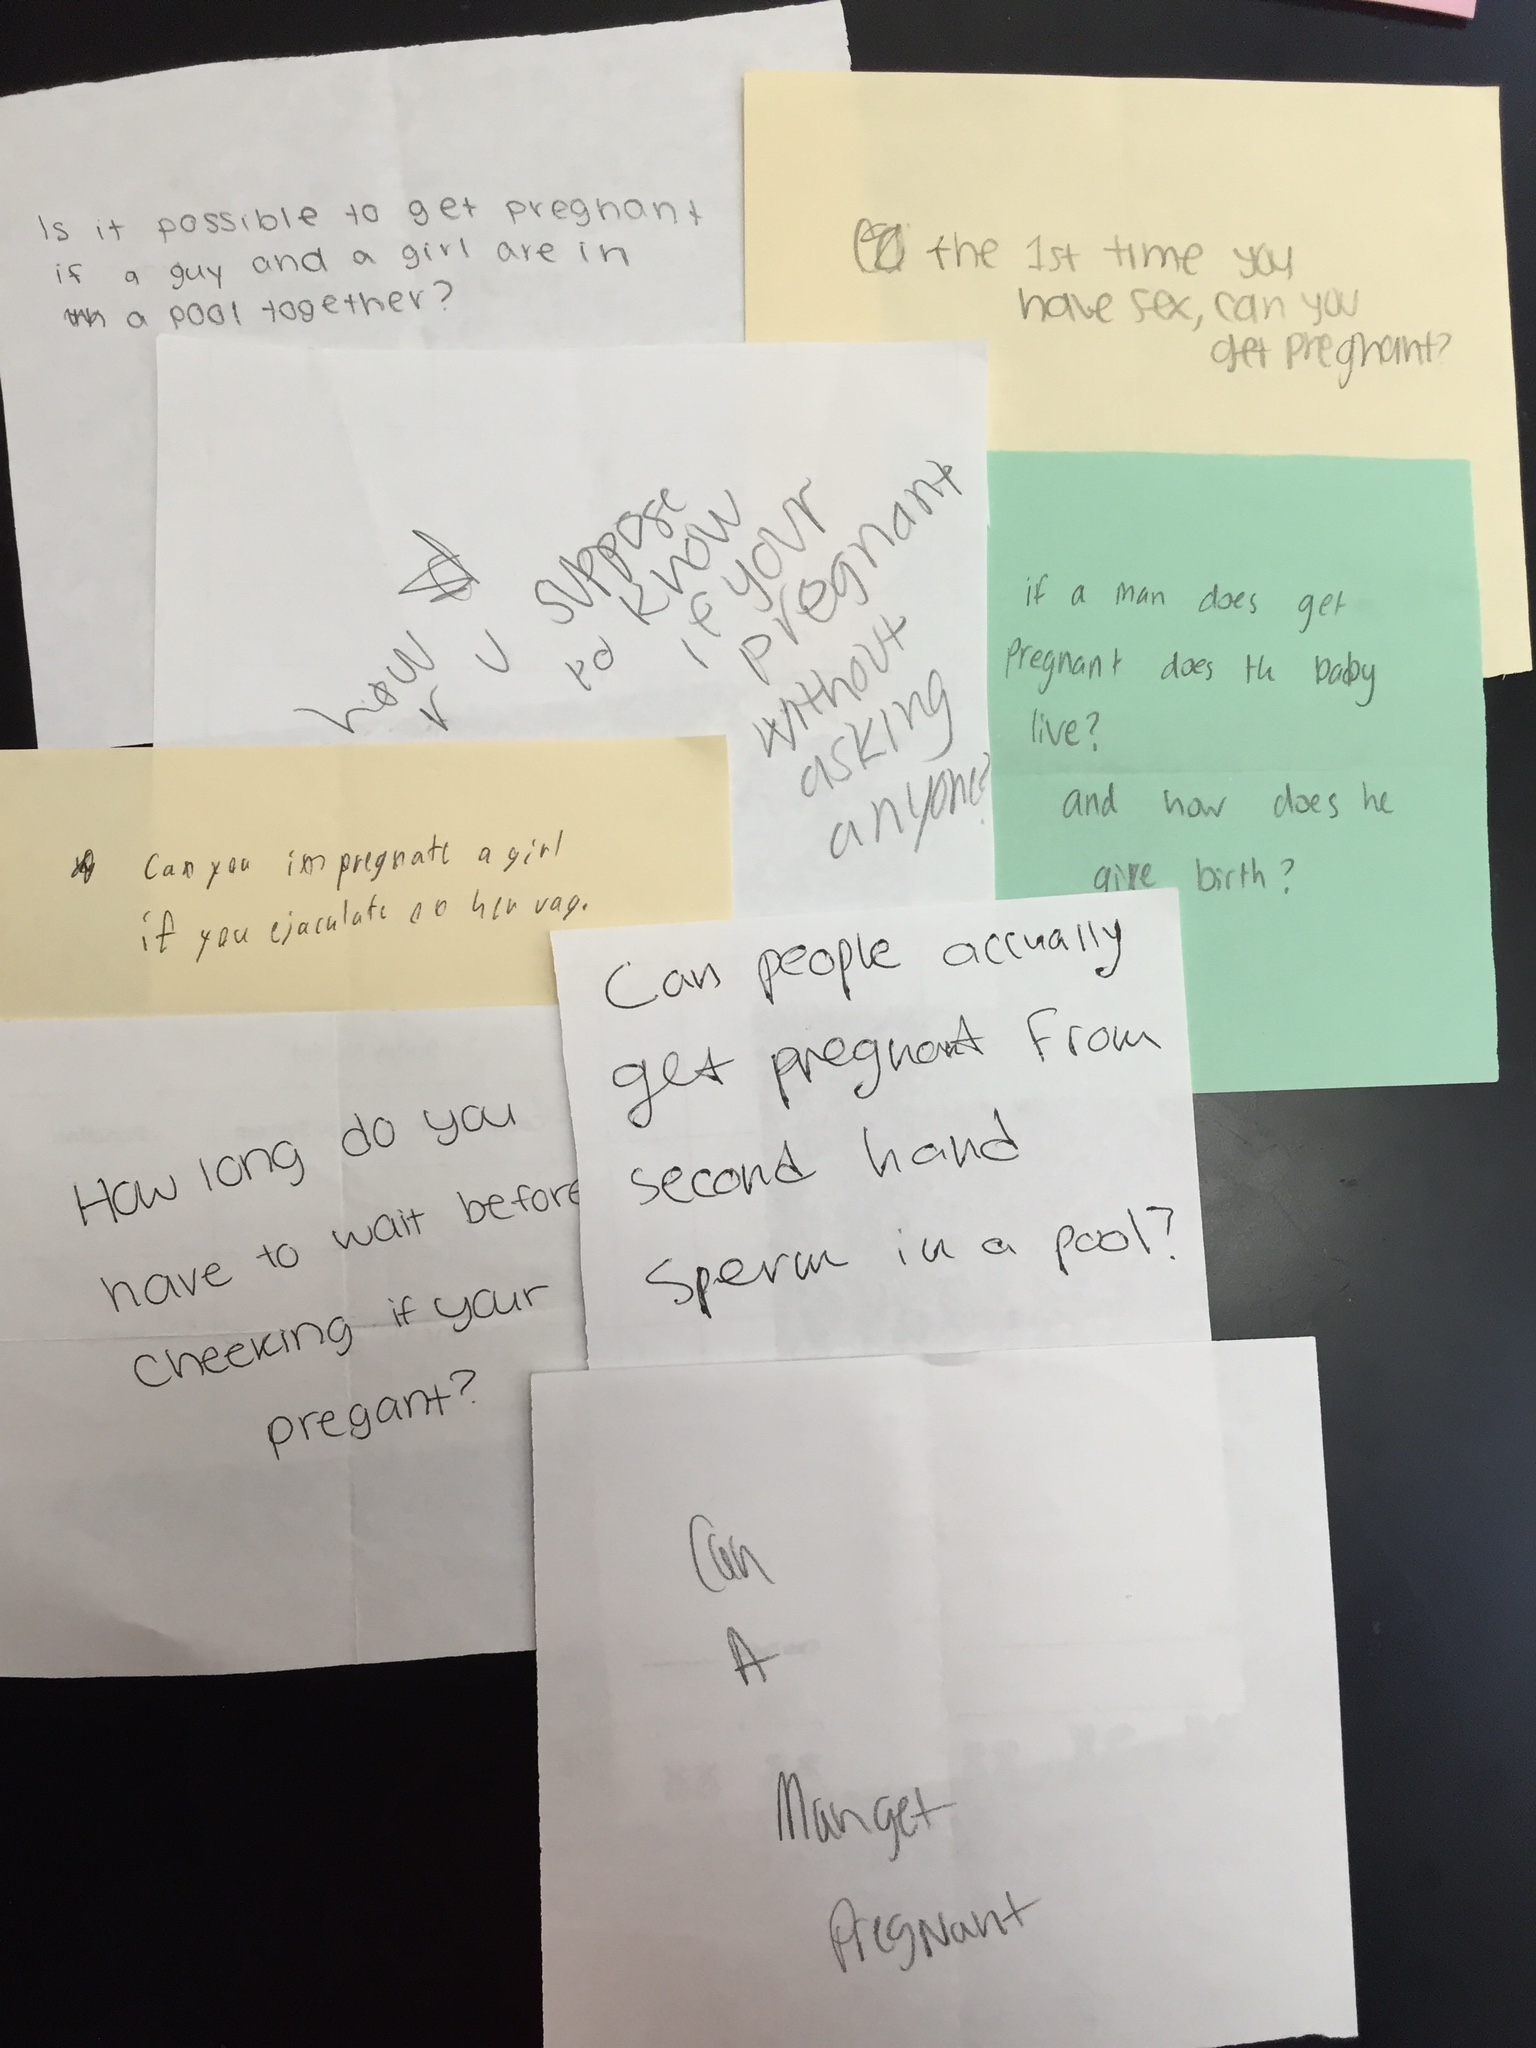 Is it possible to get pregnant
if a guy and a girl are in
a pool together?
the 1st time you
have sex, can you
get pregnant?
how
r u
suppose
to know
if your
pregnant
without
asking
anyone?
if a man does get
pregnant does the baby
live?
and how does he
give birth?
Can you impregnate a girl
if you ejaculate on her vag.
Can people accually
get pregnant from
second hand
sperm in a pool?
How long do you
have to wait before
cheeking if your
pregant?
Can
A
Man get
Pregnant